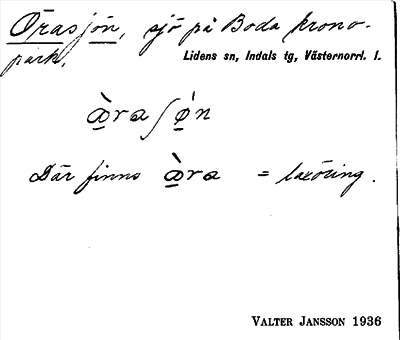 Örasjön, sjö på Boda krono-
park.
Lidens sn, Indals tg, Västernorrl. l.
œ̠̀raʃǿ̠n
Där finns œ̠̀ra = laxöring.
VALTER JANSSON 1936